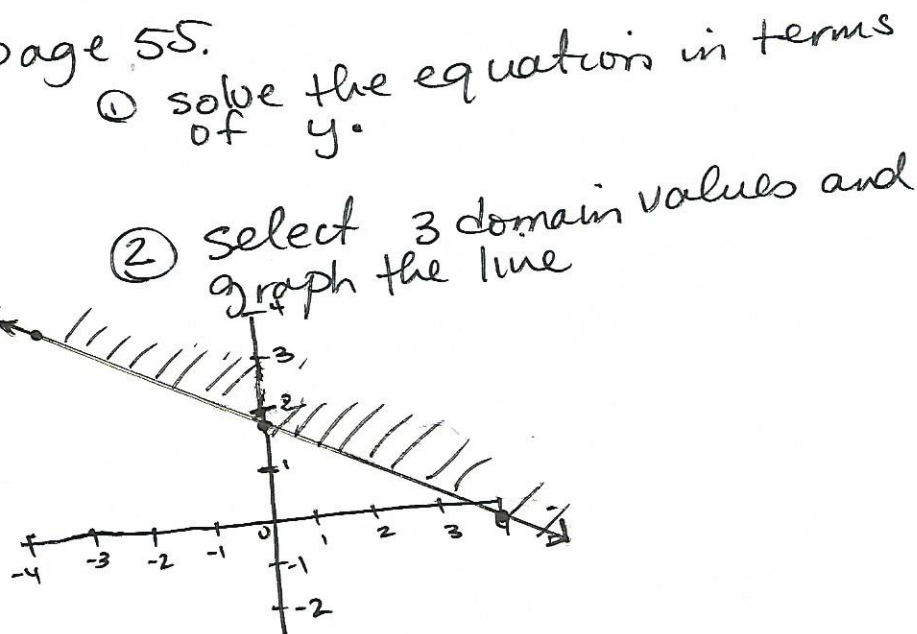 page 55.
① solve the equation in terms
of y.
② select 3 domain values and
graph the line
4
3
2
1
-4 -3 -2 -1 0 1 2 3 4
-1
-2